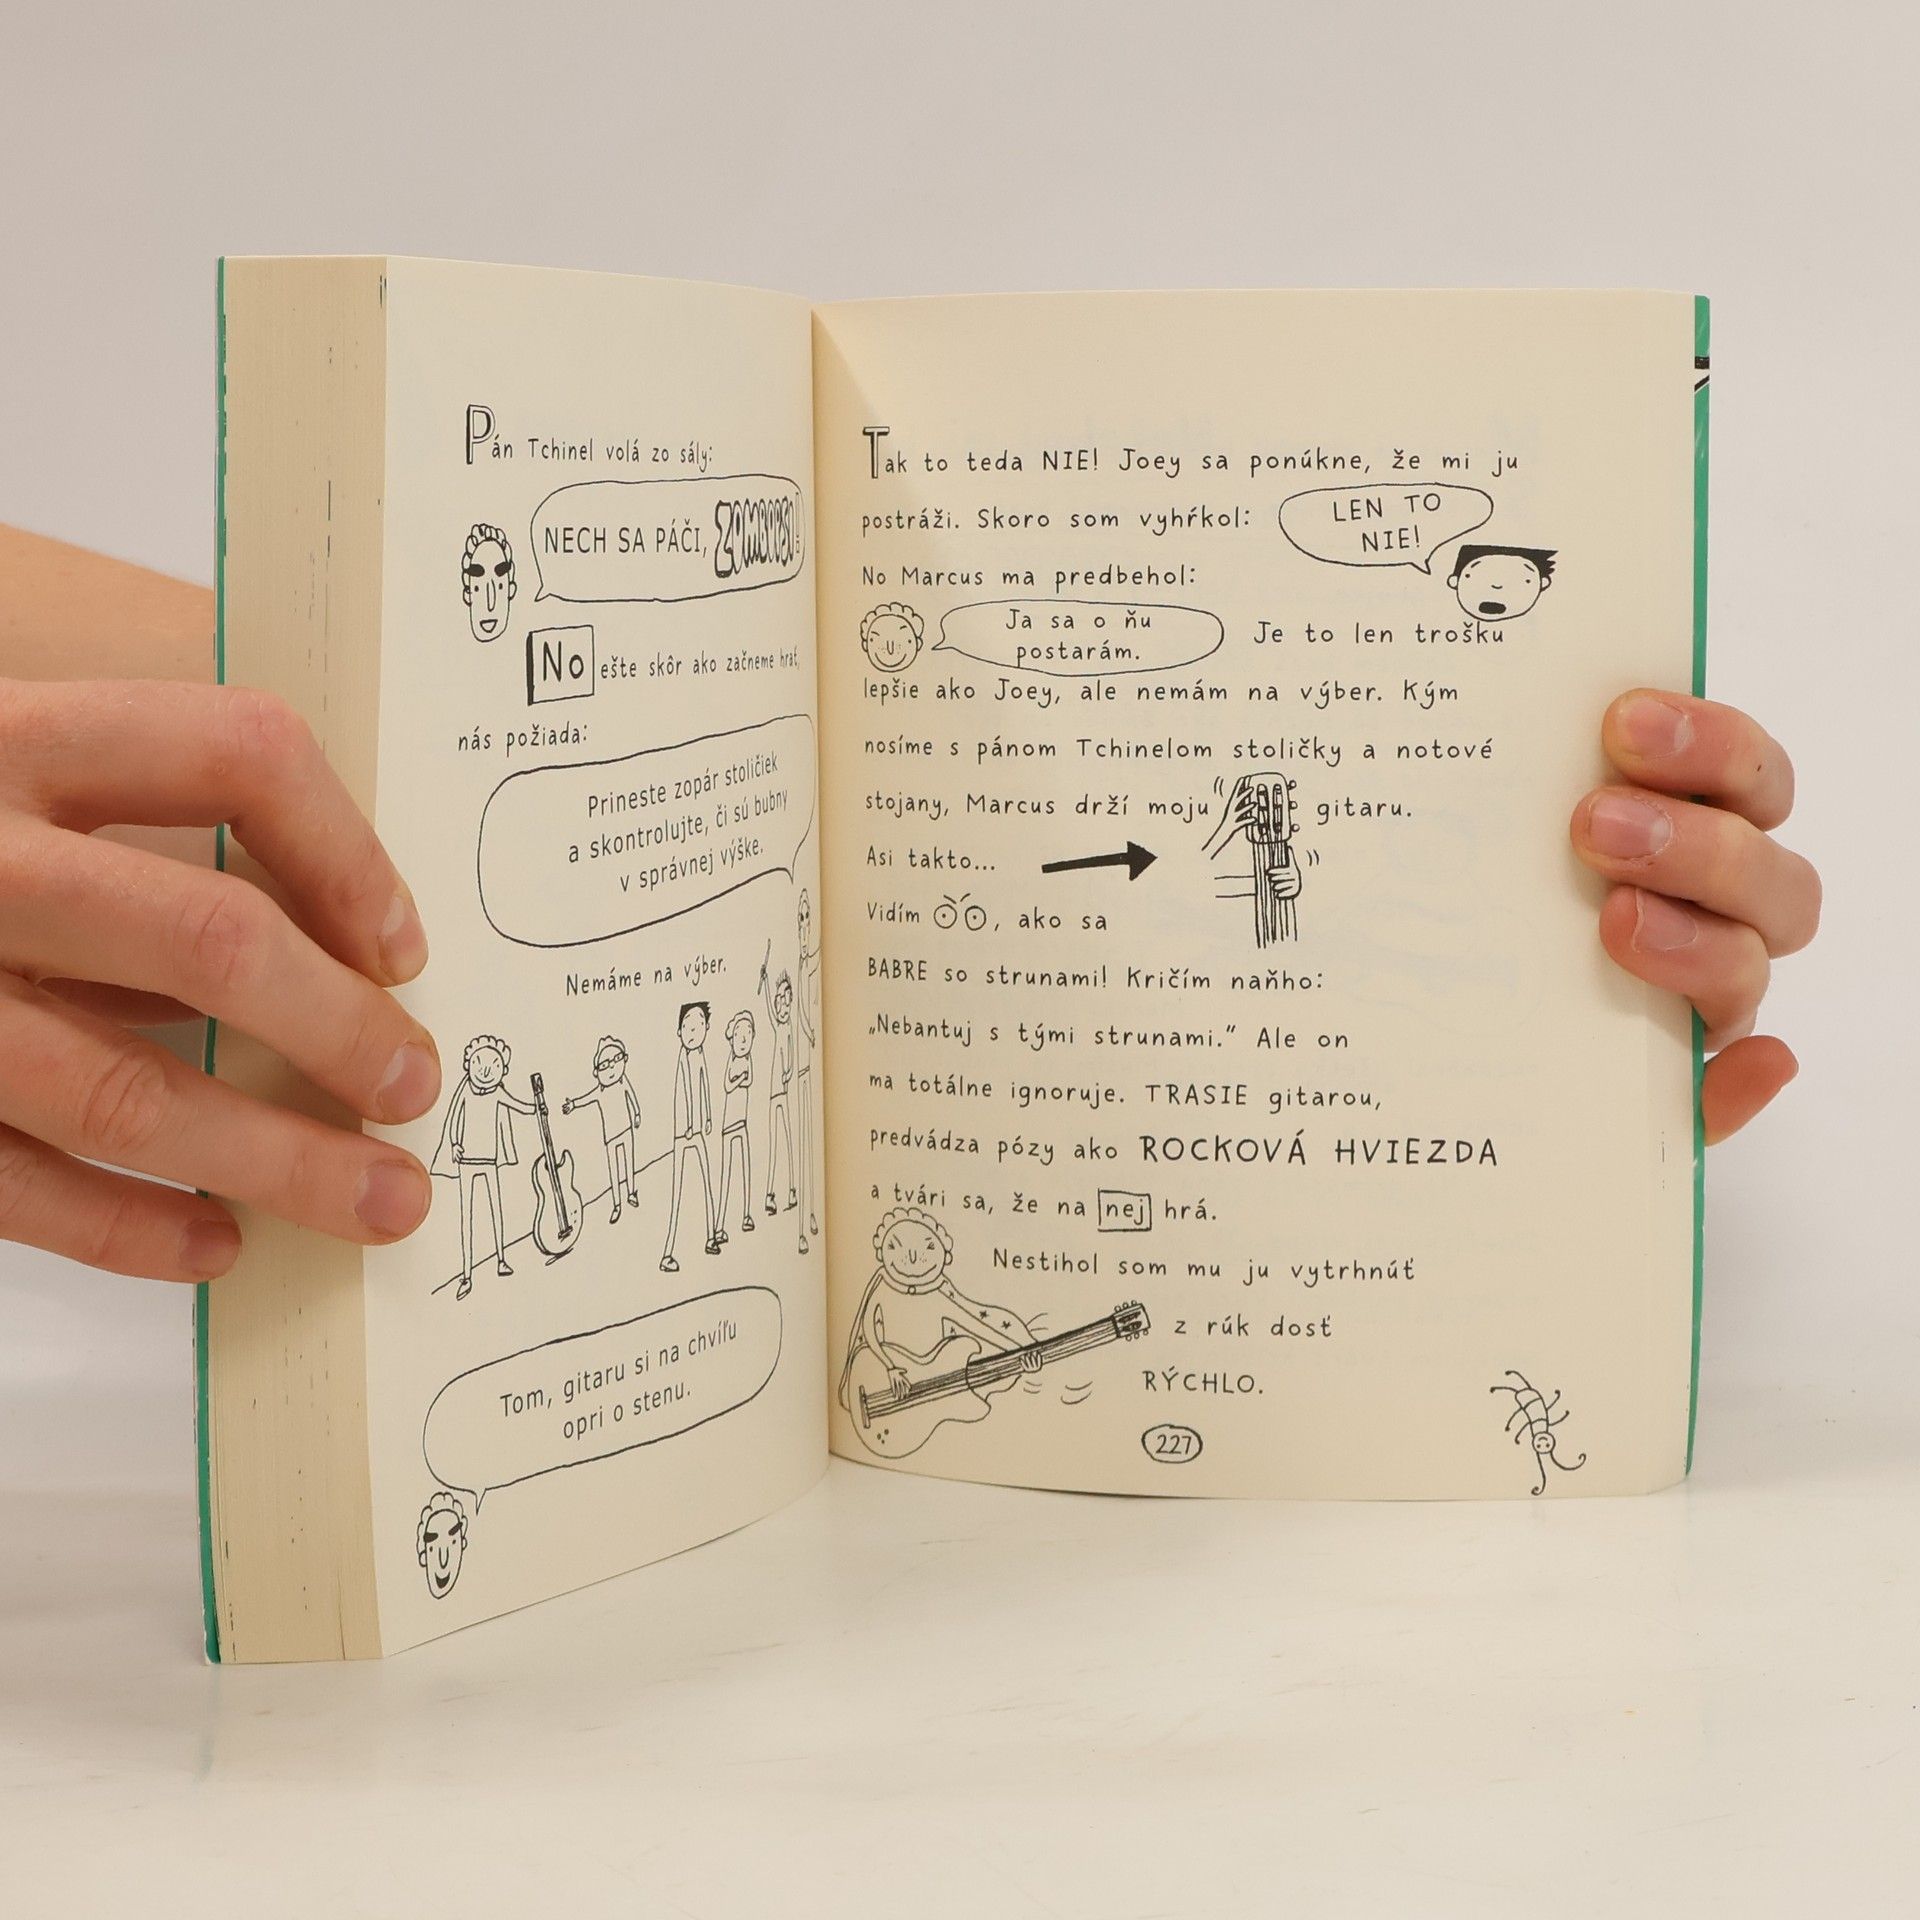 Pán Tchinel volá zo sály:
NECH SA PÁČI, ZOMBOSI!
No ešte skôr ako začneme hrať,
nás požiada:
Prineste zopár stoličiek
a skontrolujte, či sú bubny
v správnej výške.
Nemáme na výber.
Tom, gitaru si na chvíľu
opri o stenu.
Tak to teda NIE! Joey sa ponúkne, že mi ju
postráži. Skoro som vyhŕkol:
LEN TO
NIE!
No Marcus ma predbehol:
Ja sa o ňu
postarám.
Je to len trošku
lepšie ako Joey, ale nemám na výber. Kým
nosíme s pánom Tchinelom stoličky a notové
stojany, Marcus drží moju gitaru.
Asi takto...
Vidím , ako sa
BABRE so strunami! Kričím naňho:
„Nebantuj s tými strunami.“ Ale on
ma totálne ignoruje. TRASIE gitarou,
predvádza pózy ako ROCKOVÁ HVIEZDA
a tvári sa, že na nej hrá.
Nestihol som mu ju vytrhnúť
z rúk dosť
RÝCHLO.
227